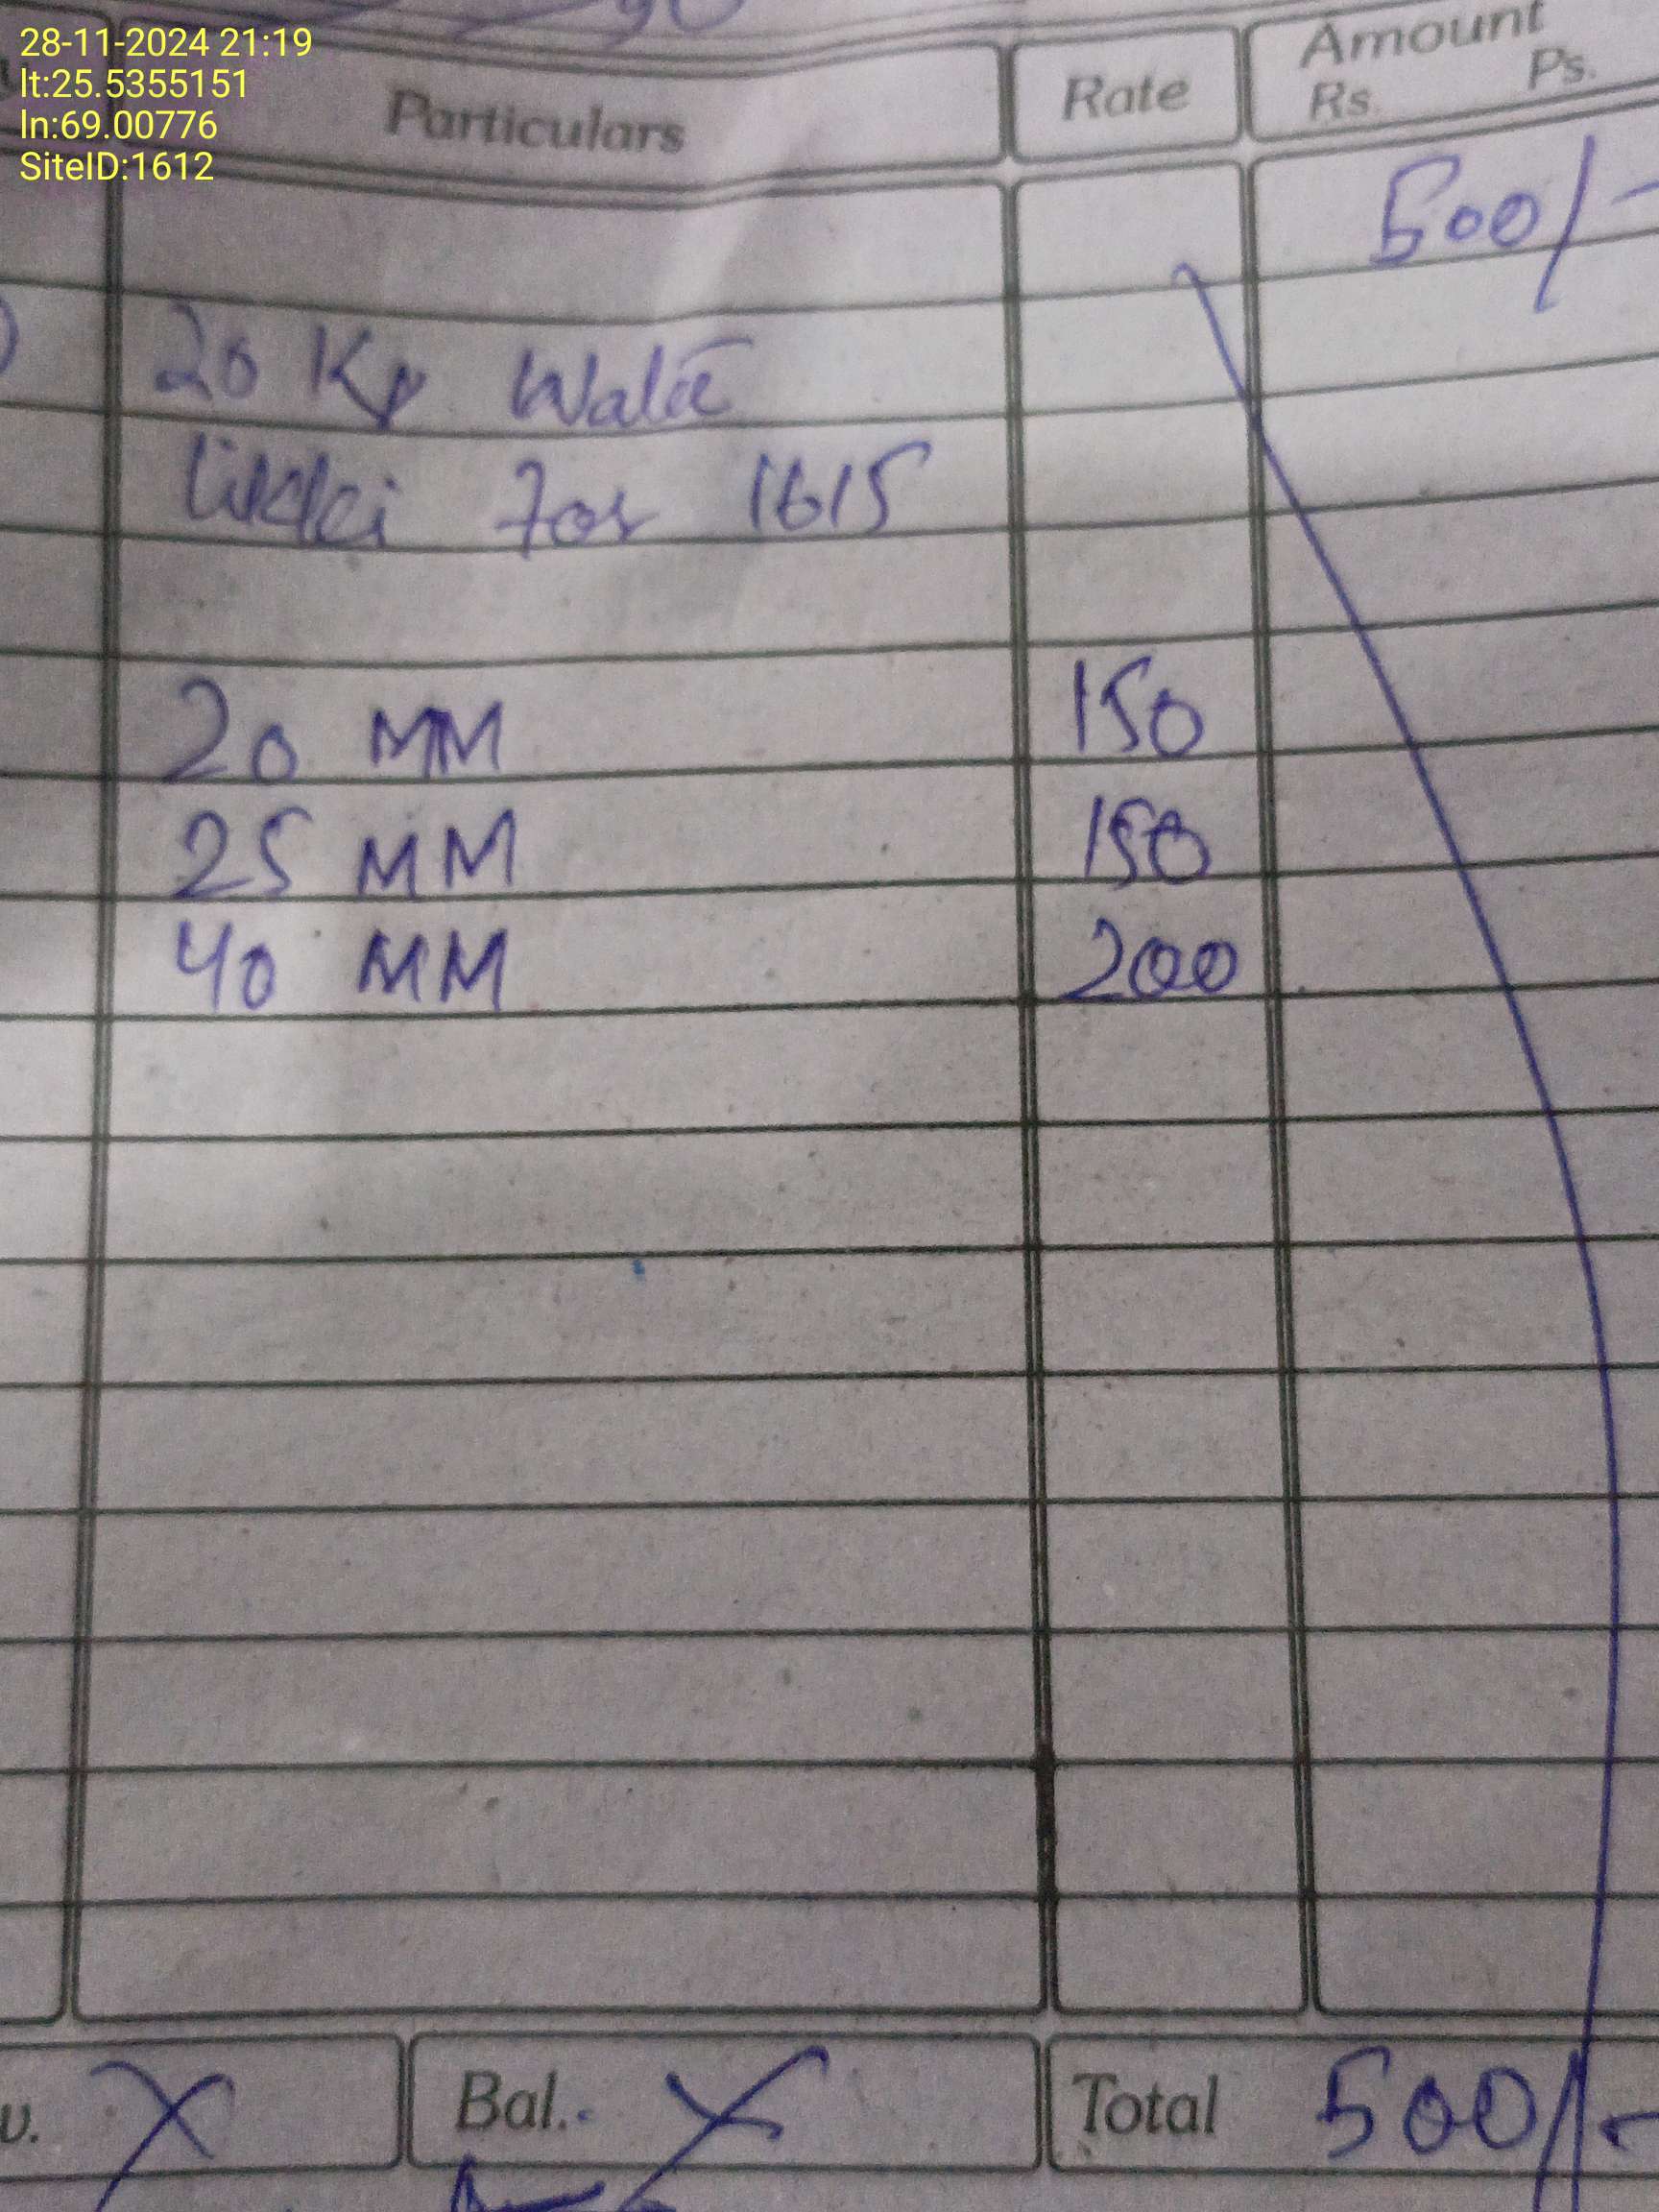 28-11-2024 21:19
lt:25.5355151
ln:69.00776
SiteID:1612
Particulars Rate Amount
Rs. Ps.
500/-
20 Kg Wala
tikki for 1615
20 MM 150
25 MM 150
40 MM 200
v. X Bal. X Total 500/-